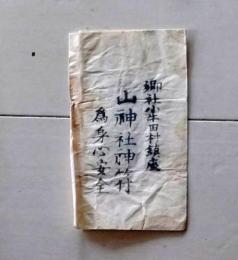 郷社小牛田村鎮座
山神社神竹
為身心安全